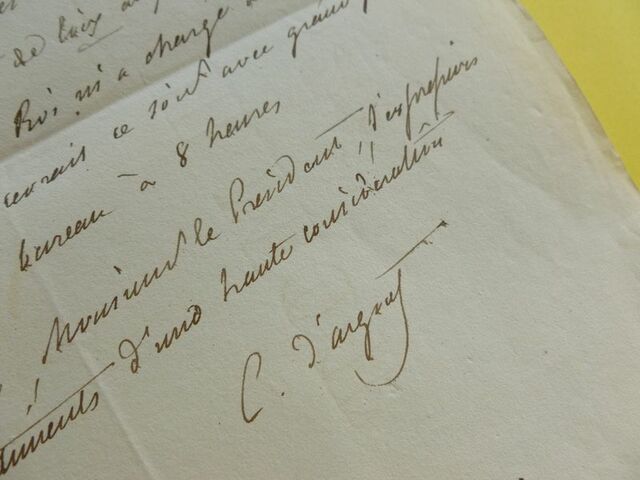 de
Roi m'a chargé
ce soir avec grand
bureau à 8 heures
Monsieur le Président, l'expression
d'une haute considération
C. d'argout